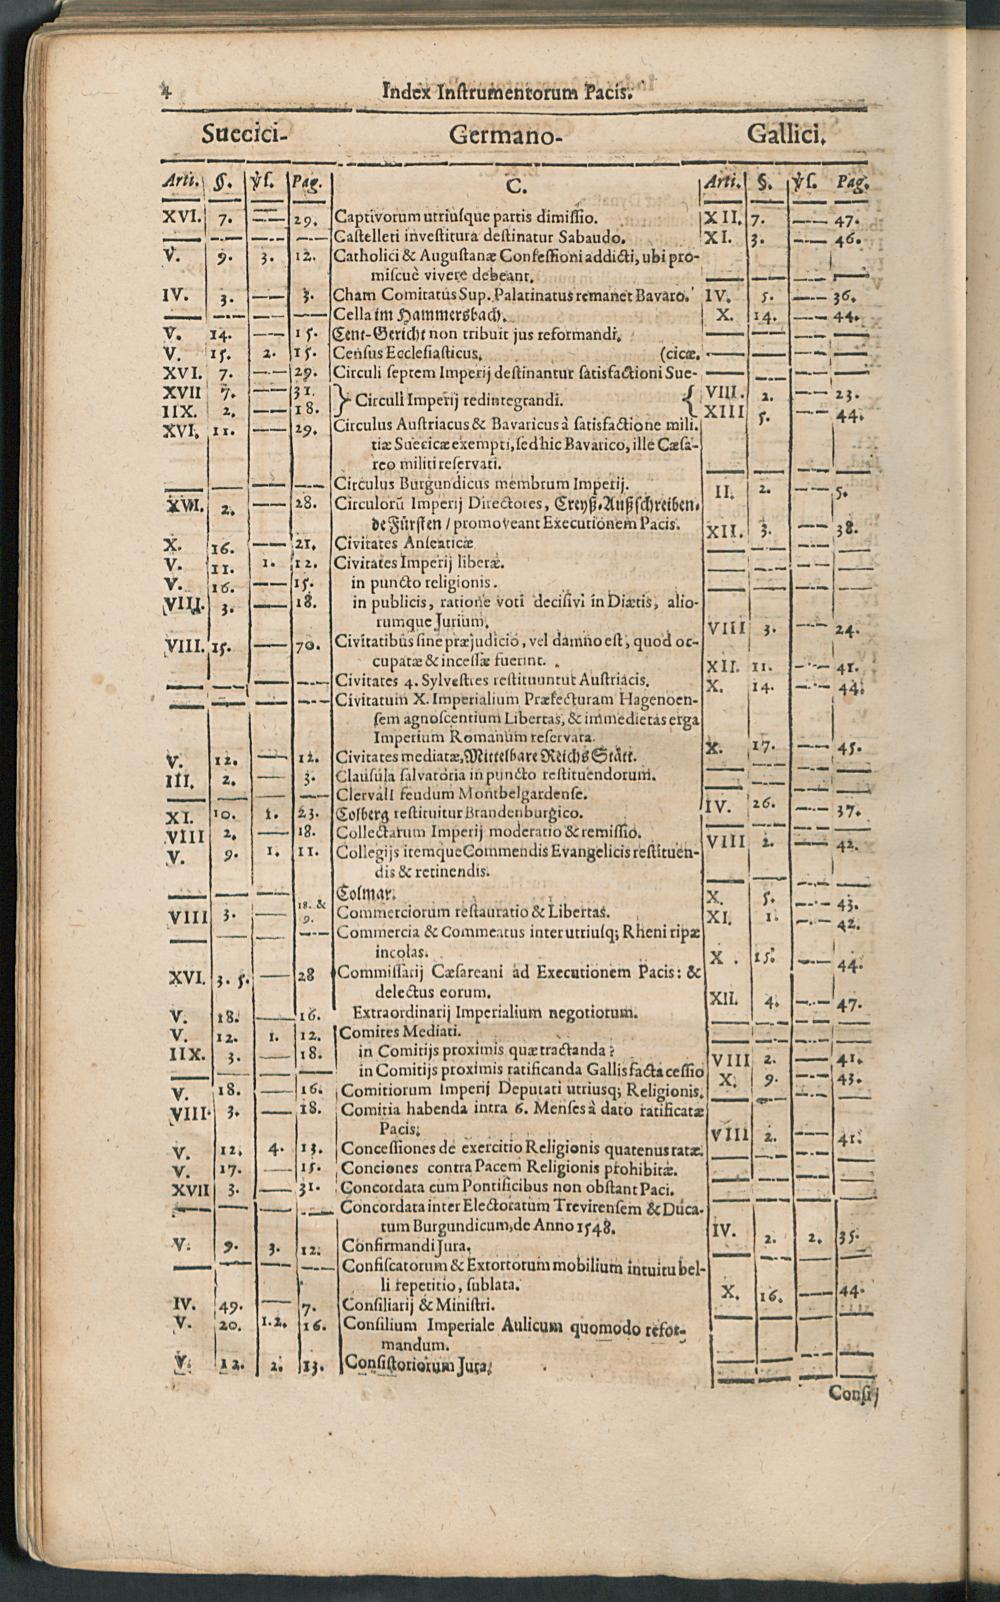 4 Index Instrumentorum Pacis.
Suecici- Germano- Gallici.
Arti. §. ỳſ. Pag. C. Arti. §. ỳſ. Pag.
XVI. 7. — 29. Captivorum utriuſque partis dimiſſio. XII. 7. — 47.
— — — — Caſtelleti inveſtitura deſtinatur Sabaudo. XI. 3. — 46.
V. 9. 3. 12. Catholici & Auguſtanæ Confeſſioni addicti, ubi pro-
miſcuè vivere debeant. — — — —
IV. 3. — 3. Cham Comitatus Sup. Palatinatus remanet Bavaro. IV. 5. — 36.
— — — — Cella im Hammersbach. X. 14. — 44.
V. 14. — 15. Cent-Gericht non tribuit jus reformandi. — — — —
V. 15. 2. 15. Cenſus Eccleſiaſticus. (cicæ. — — — —
XVI. 7. — 29. Circuli ſeptem Imperij deſtinantur ſatisfactioni Sue- — — — —
XVII 7. — 31. } Circuli Imperij redintegrandi. { VIII. 2. — 23.
IIX. 2. — 18. XIII 5. — 44.
XVI. 11. — 29. Circulus Auſtriacus & Bavaricus à ſatisfactione mili.
tiæ Suecicæ exempti, ſed hic Bavarico, ille Cæſa-
reo militi reſervati. — — — —
— — — — Circulus Burgundicus membrum Imperij. II. 2. — 5.
XVI. 2. — 28. Circulorũ Imperij Directores, Creyß-Außſchreiben-
de Fürſten / promoveant Executionem Pacis. XII. 3. — 38.
X. 16. — 21. Civitates Anſeaticæ — — — —
V. 11. 1. 12. Civitates Imperij liberæ. — — — —
V. 16. — 15. in puncto religionis. — — — —
VIII. 3. — 18. in publicis, ratione voti deciſivi in Diætis, alio-
rumque Jurium. VIII 3. — 24.
VIII. 15. — 70. Civitatibus ſine præjudicio, vel damno eſt, quod oc-
cupatæ & inceſſæ fuerint. XII. 11. — 41.
— — — — Civitates 4. Sylveſtres reſtituuntur Auſtriacis. X. 14. — 44.
— — — — Civitatum X. Imperialium Præfecturam Hagenoen-
ſem agnoſcentium Libertas, & immedietas erga
Imperium Romanum reſervata. X. 17. — 45.
V. 12. — 12. Civitates mediatæ, Mittelbare Reichs Stätt. — — — —
III. 2. — 3. Clauſula ſalvatoria in puncto reſtituendorum. — — — —
— — — — Clervall feudum Montbelgardenſe. IV. 26. — 37.
XI. 10. 1. 23. Colberg reſtituitur Brandenburgico. — — — —
VIII 2. — 18. Collectarum Imperij moderatio & remiſſio. VIII 2. — 42.
V. 9. 1. 11. Collegijs itemque Commendis Evangelicis reſtituen-
dis & retinendis. — — — —
— — — — Colmar. X. 5. — 43.
VIII 3. — 18. & 9. Commerciorum reſtauratio & Libertas. XI. 1. — 42.
— — — — Commercia & Commeatus inter utriuſq; Rheni ripæ
incolas. X. 15. — 44.
XVI. 3. 5. — 28 Commiſſarij Cæſareani ad Executionem Pacis: &
delectus eorum. XII. 4. — 47.
V. 18. — 16. Extraordinarij Imperialium negotiorum. — — — —
V. 12. 1. 12. Comites Mediati. — — — —
IIX. 3. — 18. in Comitijs proximis quæ tractanda? VIII 2. — 41.
— — — — in Comitijs proximis ratificanda Gallis facta ceſſio X. 9. — 43.
V. 18. — 16. Comitiorum Imperij Deputati utriusq; Religionis. — — — —
VIII. 3. — 18. Comitia habenda intra 6. Menſes à dato ratificatæ
Pacis. VIII 2. — 41.
V. 12. 4. 13. Conceſſiones de exercitio Religionis quatenus ratæ. — — — —
V. 17. — 15. Conciones contra Pacem Religionis prohibitæ. — — — —
XVII 3. — 31. Concordata cum Pontificibus non obſtant Paci. — — — —
— — — — Concordata inter Electoratum Trevirenſem & Duca-
tum Burgundicum, de Anno 1548. IV. 2. 2. 35.
V. 9. 3. 12. Confirmandi Jura. — — — —
— — — — Confiſcatorum & Extortorum mobilium intuitu bel-
li repetitio, ſublata. X. 16. — 44.
IV. 49. — 7. Conſiliarij & Miniſtri. — — — —
V. 20. 1.2. 16. Conſilium Imperiale Aulicum quomodo refor-
mandum. — — — —
V. 12. 2. 13. Conſiſtoriorum Jura. — — — —
Conſij